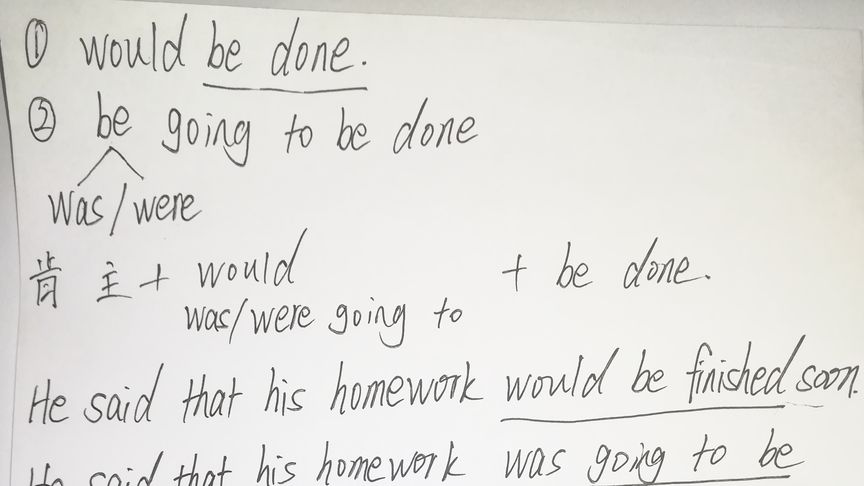 ① would be done.
② be going to be done
was/were
肯 主 + would + be done.
was/were going to
He said that his homework would be finished soon.
He said that his homework was going to be